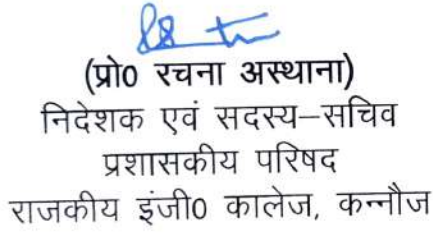 (प्रो0 रचना अस्थाना)
निदेशक एवं सदस्य–सचिव
प्रशासकीय परिषद
राजकीय इंजी0 कालेज, कन्नौज